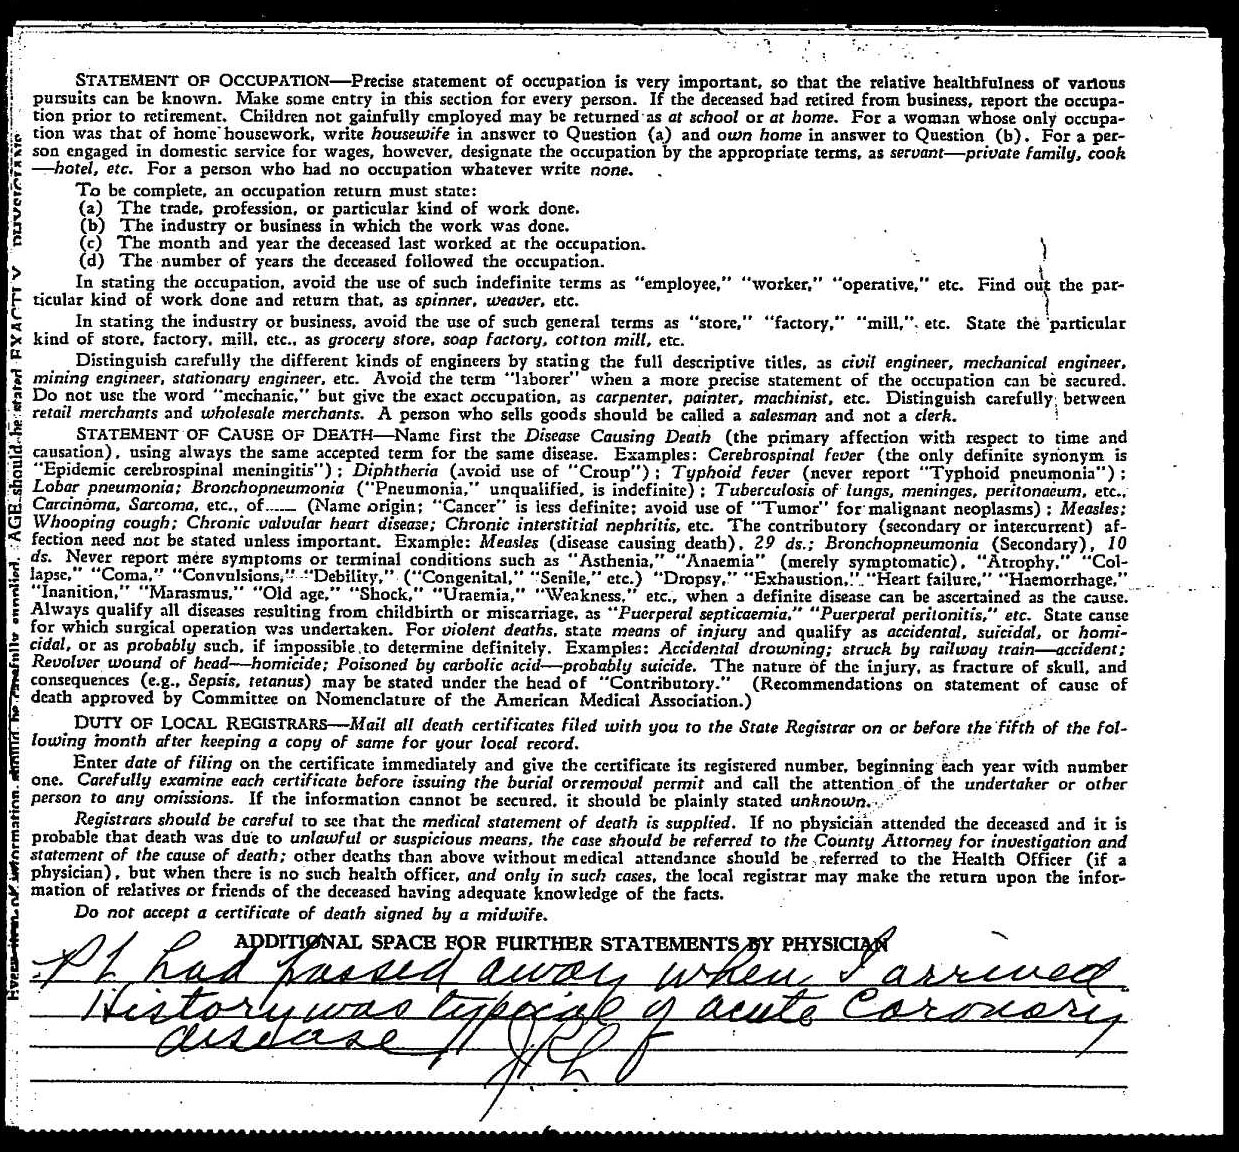 STATEMENT OF OCCUPATION—Precise statement of occupation is very important, so that the relative healthfulness of various
pursuits can be known. Make some entry in this section for every person. If the deceased had retired from business, report the occupa-
tion prior to retirement. Children not gainfully employed may be returned as at school or at home. For a woman whose only occupa-
tion was that of home housework, write housewife in answer to Question (a) and own home in answer to Question (b). For a per-
son engaged in domestic service for wages, however, designate the occupation by the appropriate terms, as servant—private family, cook
—hotel, etc. For a person who had no occupation whatever write none.
To be complete, an occupation return must state:
(a) The trade, profession, or particular kind of work done.
(b) The industry or business in which the work was done.
(c) The month and year the deceased last worked at the occupation.
(d) The number of years the deceased followed the occupation.
In stating the occupation, avoid the use of such indefinite terms as "employee," "worker," "operative," etc. Find out the par-
ticular kind of work done and return that, as spinner, weaver, etc.
In stating the industry or business, avoid the use of such general terms as "store," "factory," "mill," etc. State the particular
kind of store, factory, mill, etc., as grocery store, soap factory, cotton mill, etc.
Distinguish carefully the different kinds of engineers by stating the full descriptive titles, as civil engineer, mechanical engineer,
mining engineer, stationary engineer, etc. Avoid the term "laborer" when a more precise statement of the occupation can be secured.
Do not use the word "mechanic," but give the exact occupation, as carpenter, painter, machinist, etc. Distinguish carefully between
retail merchants and wholesale merchants. A person who sells goods should be called a salesman and not a clerk.
STATEMENT OF CAUSE OF DEATH—Name first the Disease Causing Death (the primary affection with respect to time and
causation), using always the same accepted term for the same disease. Examples: Cerebrospinal fever (the only definite synonym is
"Epidemic cerebrospinal meningitis"); Diphtheria (avoid use of "Croup"); Typhoid fever (never report "Typhoid pneumonia");
Lobar pneumonia; Bronchopneumonia ("Pneumonia," unqualified, is indefinite); Tuberculosis of lungs, meninges, peritonaeum, etc.,
Carcinoma, Sarcoma, etc., of...... (Name origin; "Cancer" is less definite; avoid use of "Tumor" for malignant neoplasms); Measles;
Whooping cough; Chronic valvular heart disease; Chronic interstitial nephritis, etc. The contributory (secondary or intercurrent) af-
fection need not be stated unless important. Example: Measles (disease causing death), 29 ds.; Bronchopneumonia (Secondary), 10
ds. Never report mere symptoms or terminal conditions such as "Asthenia," "Anaemia" (merely symptomatic), "Atrophy," "Col-
lapse," "Coma," "Convulsions," "Debility," ("Congenital," "Senile," etc.) "Dropsy," "Exhaustion," "Heart failure," "Haemorrhage,"
"Inanition," "Marasmus," "Old age," "Shock," "Uraemia," "Weakness," etc., when a definite disease can be ascertained as the cause.
Always qualify all diseases resulting from childbirth or miscarriage, as "Puerperal septicaemia," "Puerperal peritonitis," etc. State cause
for which surgical operation was undertaken. For violent deaths, state means of injury and qualify as accidental, suicidal, or homi-
cidal, or as probably such, if impossible to determine definitely. Examples: Accidental drowning; struck by railway train—accident;
Revolver wound of head—homicide; Poisoned by carbolic acid—probably suicide. The nature of the injury, as fracture of skull, and
consequences (e.g., Sepsis, tetanus) may be stated under the head of "Contributory." (Recommendations on statement of cause of
death approved by Committee on Nomenclature of the American Medical Association.)
DUTY OF LOCAL REGISTRARS—Mail all death certificates filed with you to the State Registrar on or before the fifth of the fol-
lowing month after keeping a copy of same for your local record.
Enter date of filing on the certificate immediately and give the certificate its registered number, beginning each year with number
one. Carefully examine each certificate before issuing the burial or removal permit and call the attention of the undertaker or other
person to any omissions. If the information cannot be secured, it should be plainly stated unknown.
Registrars should be careful to see that the medical statement of death is supplied. If no physician attended the deceased and it is
probable that death was due to unlawful or suspicious means, the case should be referred to the County Attorney for investigation and
statement of the cause of death; other deaths than above without medical attendance should be referred to the Health Officer (if a
physician), but when there is no such health officer, and only in such cases, the local registrar may make the return upon the infor-
mation of relatives or friends of the deceased having adequate knowledge of the facts.
Do not accept a certificate of death signed by a midwife.
ADDITIONAL SPACE FOR FURTHER STATEMENTS BY PHYSICIAN
Pt had passed away when I arrived
History was typical of acute Coronary
disease